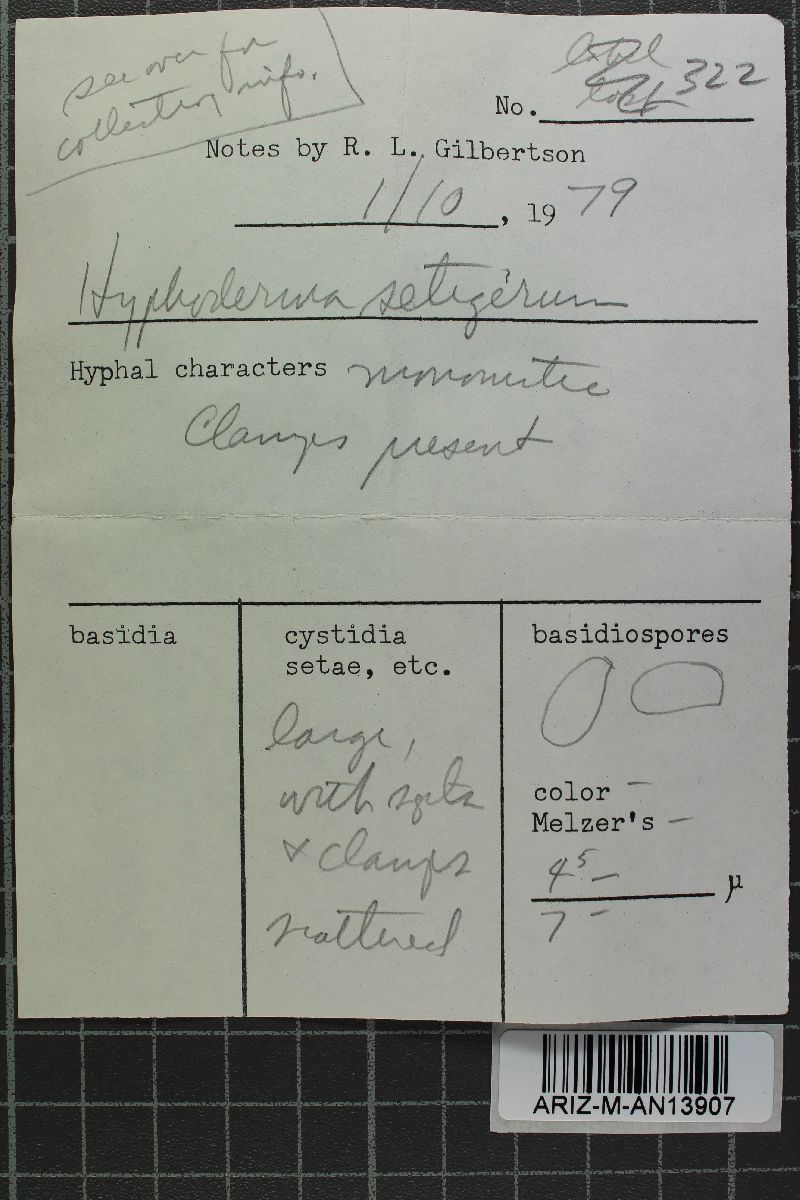 see over for
collection info.
No. 322
Notes by R. L. Gilbertson
1/10, 1979
Hyphoderma setigerum
Hyphal characters monomitic
Clamps present
basidia
cystidia
setae, etc.
large,
with septa
& clamps
scattered
basidiospores
color –
Melzer's –
4⁵ – µ
7 –
ARIZ-M-AN13907